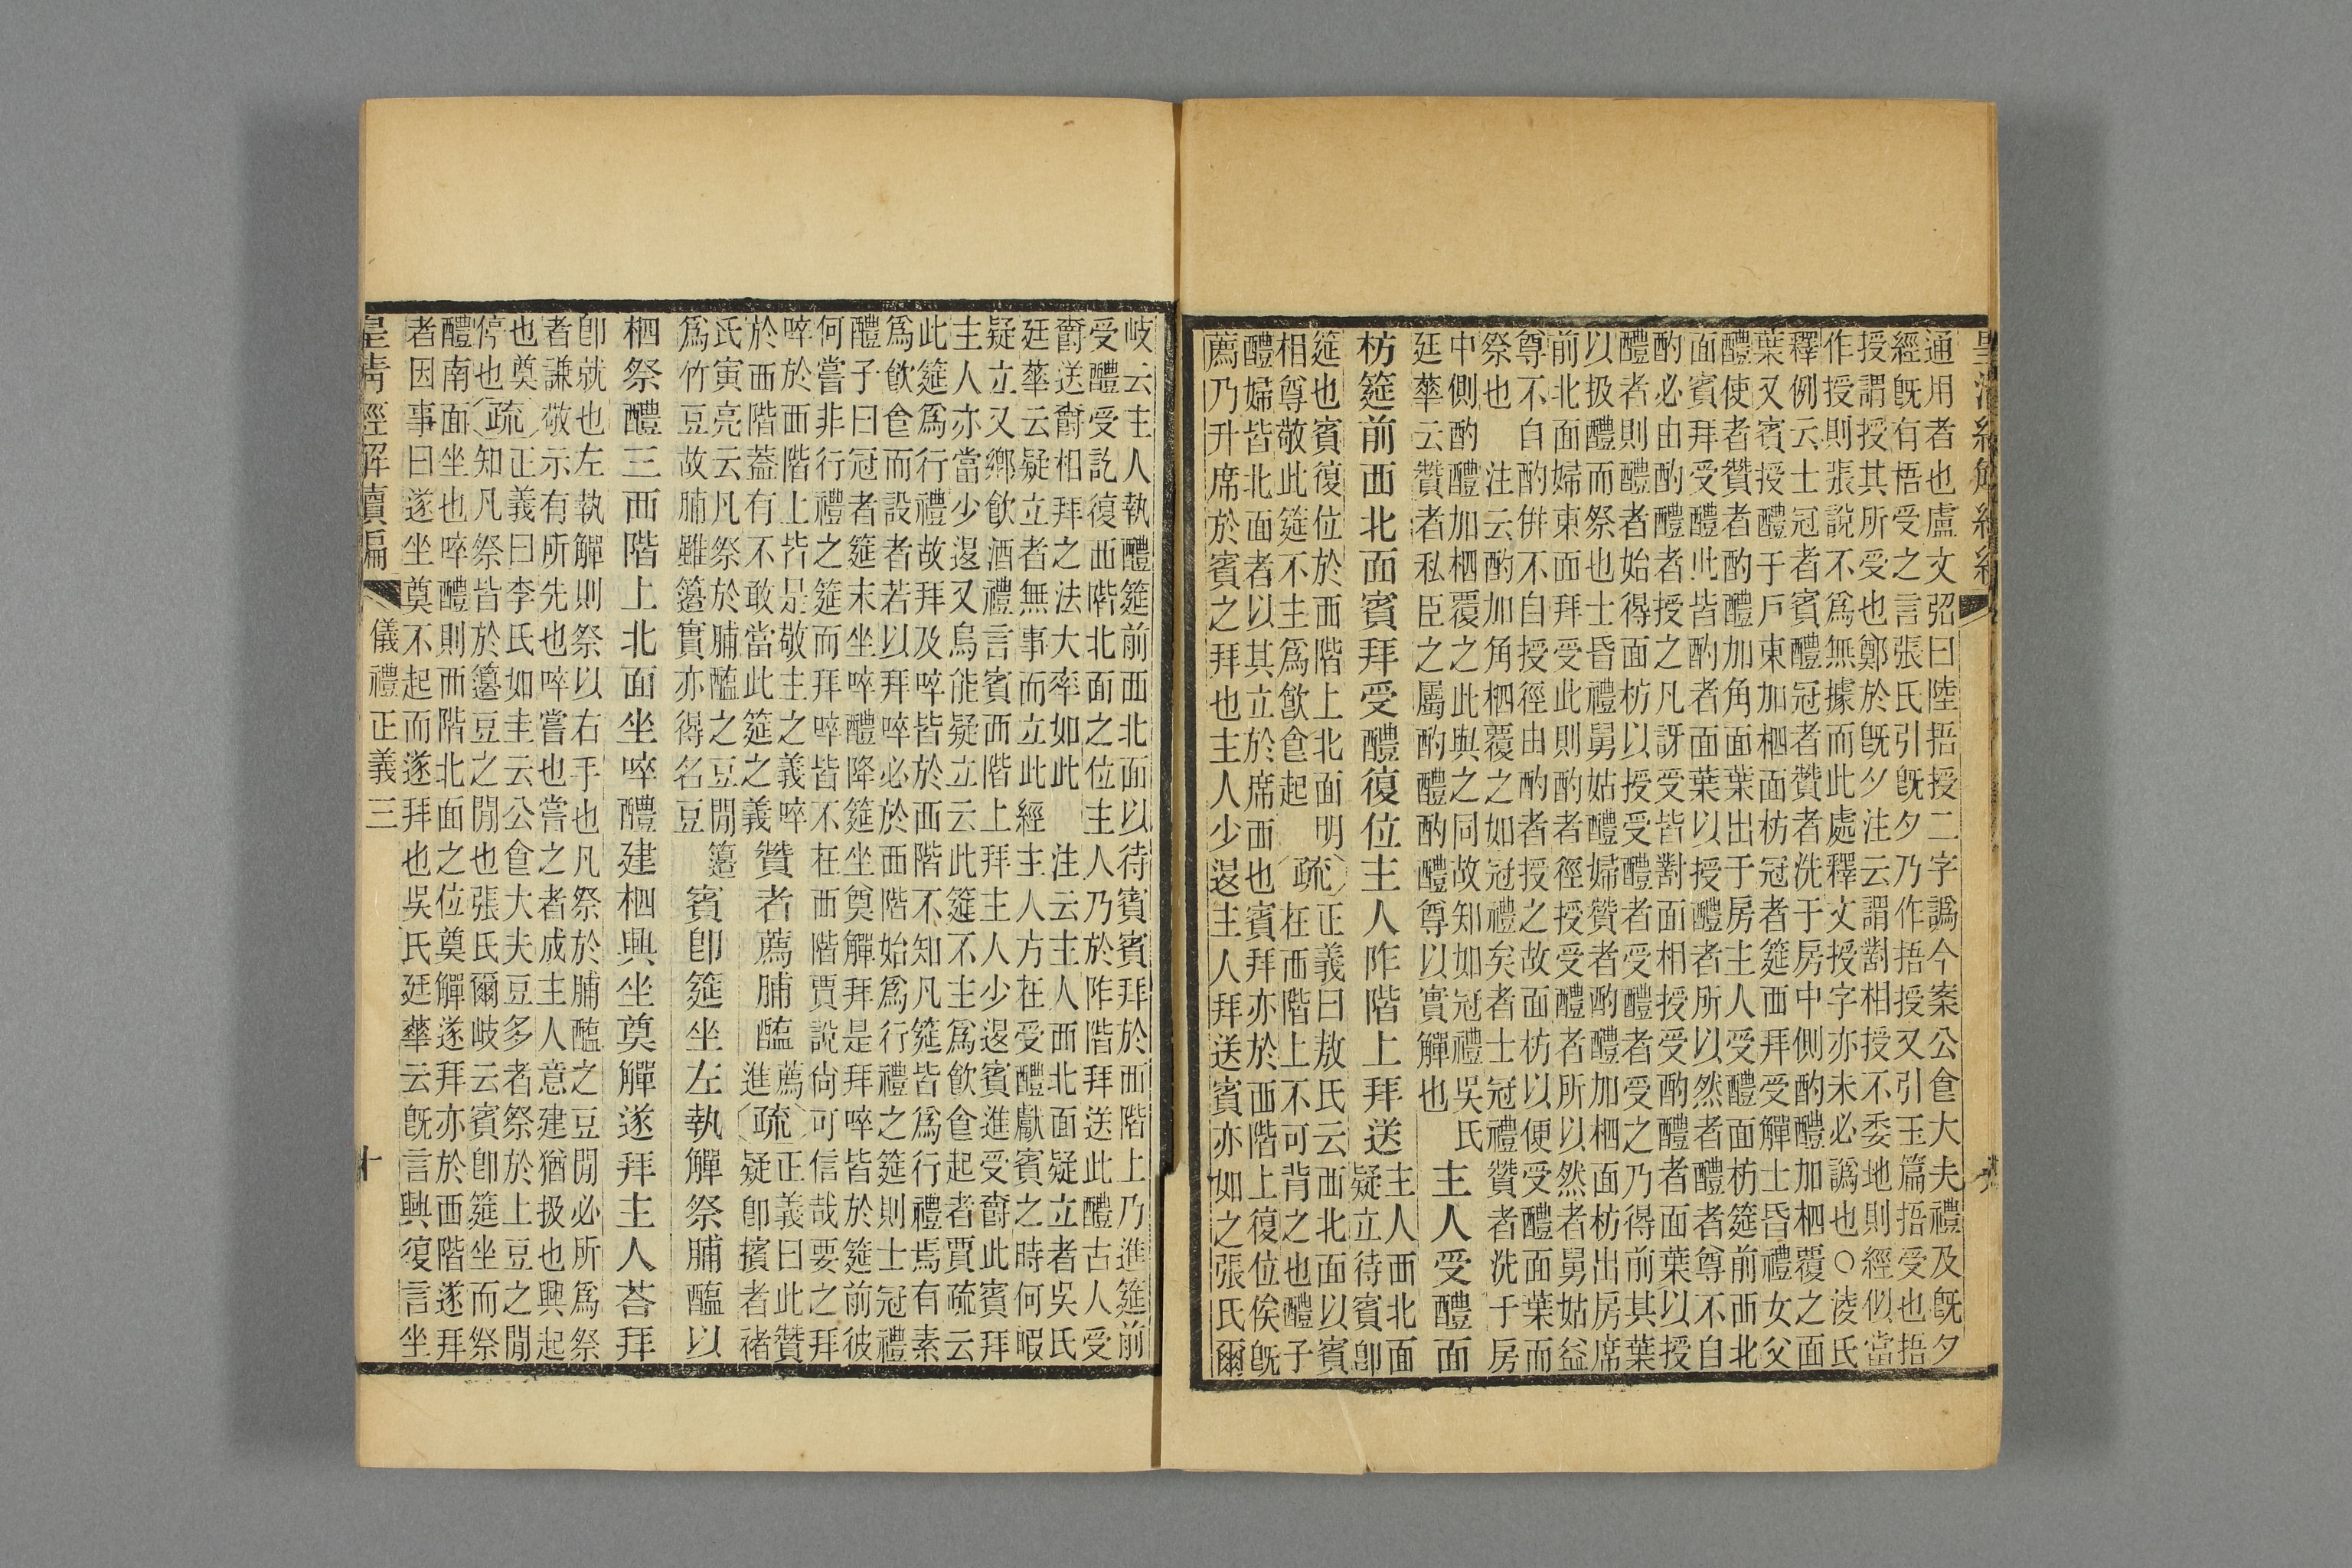 通用者也盧文弨曰陸捂授二字譌今案公食大夫禮及旣夕
經旣有梧受之言張氏引旣夕乃作捂授又引玉篇捂受也捂
授謂授其所受也鄭於旣夕注云謂對相授不委地則經似當
作授則張說不爲無據而此處釋文授字亦未必譌也○淩氏
釋例云士冠者賓醴冠者贊者洗于房中側酌醴加柶覆之面
葉又賓授醴于戶東加柶面枋冠者筵西拜受觶士昏禮女父
醴使者贊者酌醴加角面葉出于房主人受醴面枋筵前西北
面賓拜受醴此皆酌者面葉以授醴者所以然者醴者尊不自
酌必由酌醴者授之凡訝受皆對面相授受酌醴者面葉以授
醴者則醴者始得面枋以授受醴者受醴者受之乃得前其葉
以扱醴而祭也士昏禮舅姑醴婦贊者酌醴加柶面枋出房席
前北面婦東面拜受此則酌者徑授受醴者所以然者舅姑益
尊不自酌併不自授徑由酌者授之故面枋以便受醴面葉而
祭也 注云酌加角柶覆之如冠禮矣者士冠禮贊者洗于房
中側酌醴加柶覆之此與之同故知如冠禮 吳氏
廷華云贊者私臣之屬酌醴酌醴尊以實觶也
主人受醴面
枋筵前西北面賓拜受醴復位主人阼階上拜送
主人西北面
疑立待賓卽
筵也賓復位於西階上北面明
相尊敬此筵不主爲飮食起
疏正義曰敖氏云西北面以賓
在西階上不可背之也醴子
醴婦皆北面者以其立於席西也賓拜亦於西階上復位俟旣
薦乃升席於賓之拜也主人少退主人拜送賓亦如之張氏爾
岐云主人執醴筵前西北面以待賓賓拜於西階上乃進筵前
受醴受訖復西階北面之位主人乃於阼階拜送此醴古人受
爵送爵相拜之法大率如此 注云主人西北面疑立者吳氏
廷華云疑立者無事而立此經主人方在受醴獻賓之時何暇
疑立又鄉飮酒禮言賓西階上拜主人少退賓進受爵此賓拜
主人亦當少退又烏能疑立云此筵不主爲飮食起者賈疏云
此筵爲行禮故拜及啐皆於西階不知凡筵皆爲行禮焉有素
爲飮食而設者若以拜啐必於西階始爲行禮之筵則士冠禮
醴子曰冠者筵末坐啐醴降筵坐奠觶拜是拜啐皆於筵前彼
何嘗非行禮之筵而拜啐皆不在西階賈說尙可信哉要之拜
啐於西階上皆是敬主之義啐
於西階蓋有不敢當此筵之義
贊者薦脯醢
薦
進
疏正義曰此贊
疑卽擯者褚
氏寅亮云凡祭於脯醢之豆閒
爲竹豆故脯雖籩實亦得名豆
籩
賓卽筵坐左執觶祭脯醢以
柶祭醴三西階上北面坐啐醴建柶興坐奠觶遂拜主人荅拜
卽就也左執觶則祭以右手也凡祭於脯醢之豆閒必所爲祭
者謙敬示有所先也啐嘗也嘗之者成主人意建猶扱也興起
也奠
停也
疏正義曰李氏如圭云公食大夫豆多者祭於上豆之閒
知凡祭皆於籩豆之閒也張氏爾岐云賓卽筵坐而祭
醴南面坐也啐醴則西階北面之位奠觶遂拜亦於西階遂拜
者因事曰遂坐奠不起而遂拜也吳氏廷華云旣言興復言坐
皇清經解續編 儀禮正義三 十